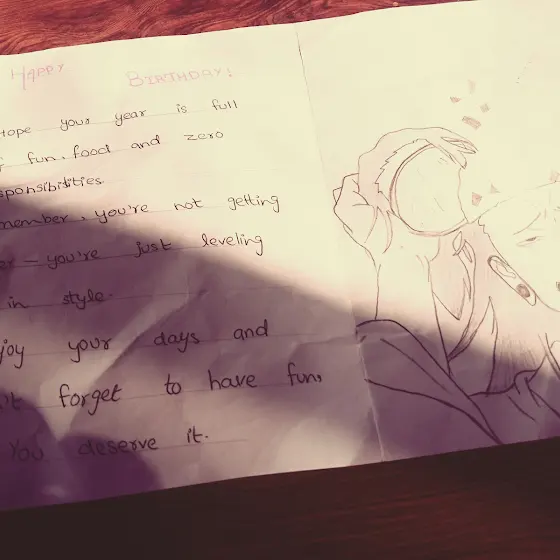 HAPPY BIRTHDAY!
Hope your year is full
f fun, food and zero
sponsibilities.
member, you're not getting
er – you're just leveling
in style.
joy your days and
't forget to have fun,
You deserve it.